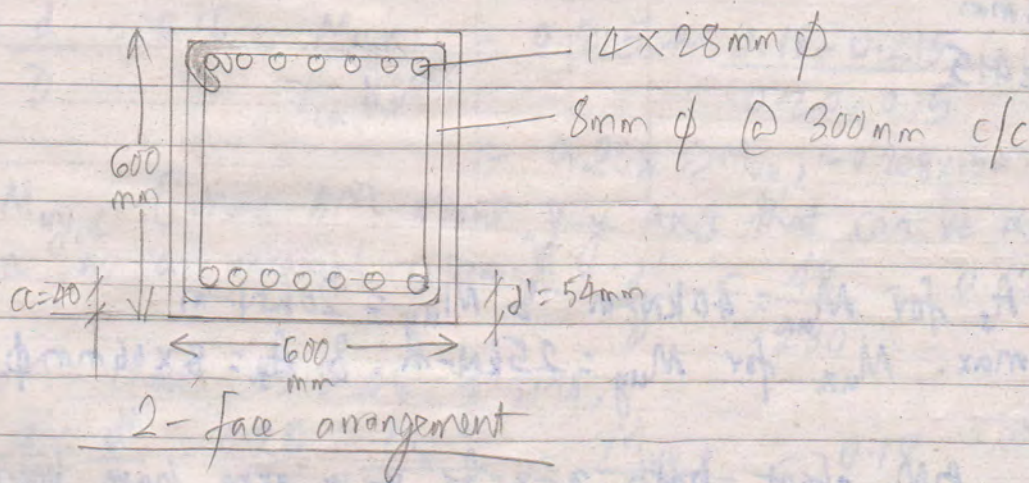 14 x 28mm ϕ
8mm ϕ @ 300mm c/c
600
mm
cc=40
d'=54mm
600
mm
2-face arrangement